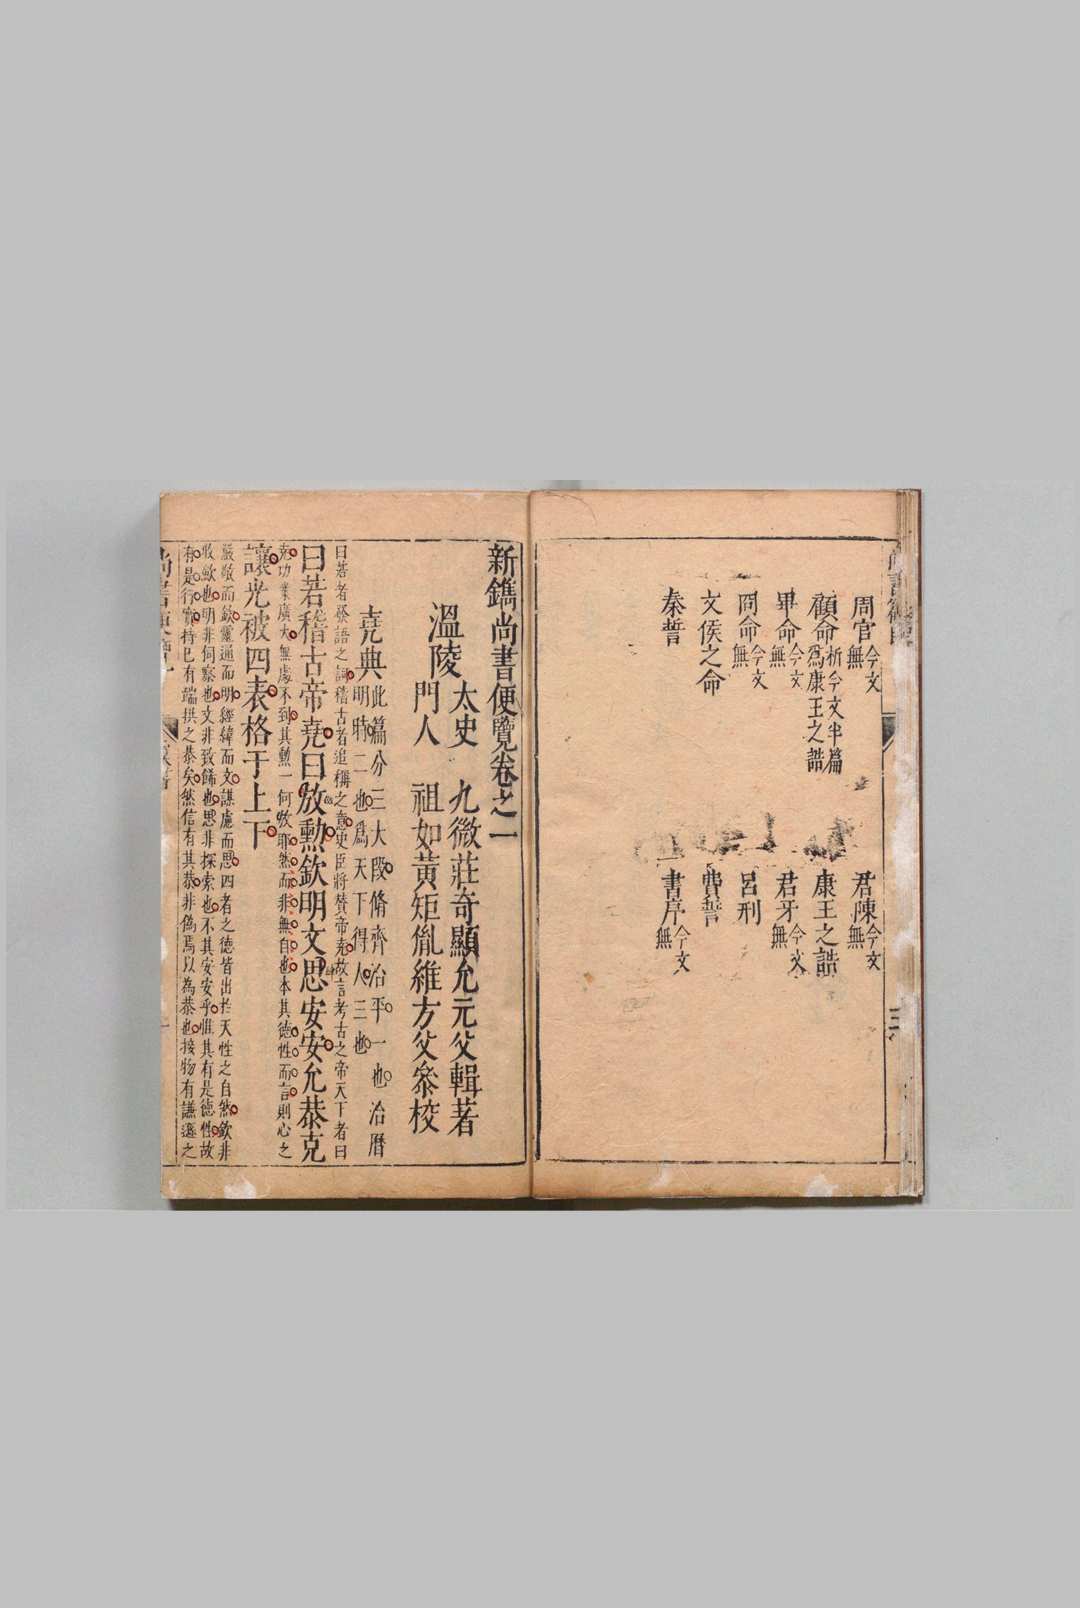 周官今文無
君陳今文無
顧命析今文半篇為康王之誥
康王之誥
畢命今文無
君牙今文無
冏命今文無
呂刑
文侯之命
費誓
秦誓
書序今文無
新鐫尚書便覽卷之一
溫陵
太史　九微莊奇顯允元父輯著
門人　祖如黃矩胤維方父叅校
堯典此篇分三大段脩齊治平一也治曆
明時二也為天下得人三也
曰若者發語之詞稽古者追稱之意史臣將贊帝堯故言考古之帝天下者曰
曰若稽古帝堯曰放勲欽明文思安安允恭克
堯功業廣大無處不到其勲一何放耶然而非無自也本其德性而言則心之
讓光被四表格于上下
嚴敬而欽靈通而明經緯而文謀慮而思四者之德皆出於天性之自然欽非
收歛也明非伺察也文非致餙也思非探索也不其安安乎惟其有是德性故
有是行實持已有端拱之恭矣然信有其恭非偽焉以為恭也接物有謙遜之